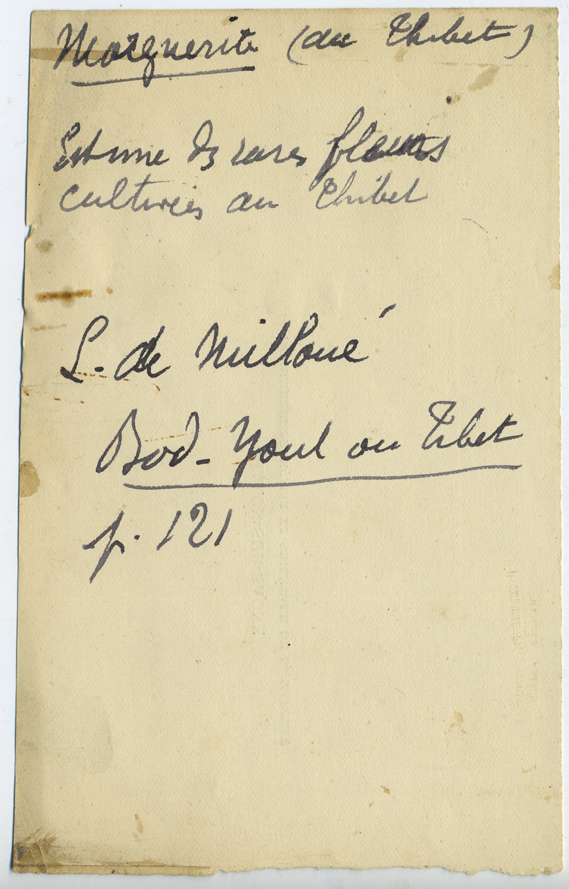 Marguerite (au Thibet)
Est une des rares fleurs
cultivées au Thibet
L. de Milloué
Bod-Youl ou Tibet
p. 121